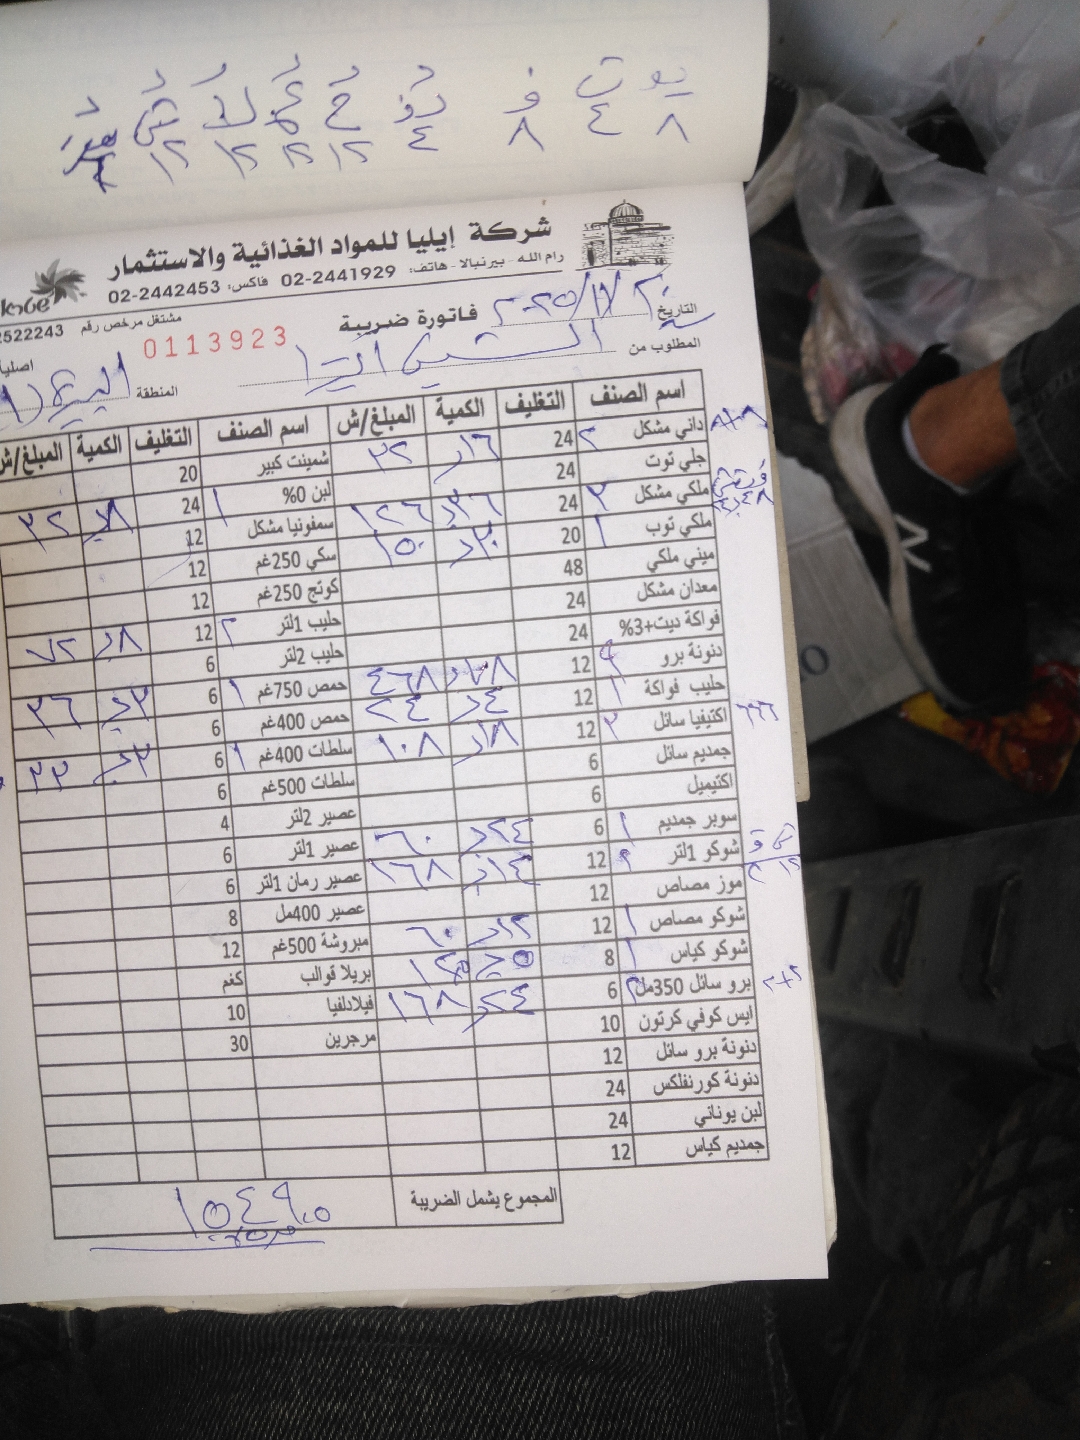 يو ت ف دف
٨ ٤ ٨ ٤ ١٢ ١٢ ١٢ ١٢
شركة إيليا للمواد الغذائية والاستثمار
رام الله - بيرنبالا - هاتف: 02-2441929 فاكس: 02-2442453
مشتغل مرخص رقم 2522243
التاريخ ٢٠٢٥/١١/٢٠ فاتورة ضريبة 0113923
المطلوب من المنطقة
اسم الصنف التغليف الكمية المبلغ/ش اسم الصنف التغليف الكمية المبلغ/ش
داني مشكل ٢ 24 ١٦ ٣٢ شمينت كبير 20
جلي توت 24 لبن 0% ١ 24 ٨ ٣٢
ملكي مشكل ٣ 24 ٣٦ ١٢٦ سمفونيا مشكل 12
ملكي توب ١ 20 ٣٠ ١٥٠ سكي 250غم 12
ميني ملكي 48 كوتج 250غم 12
معدان مشكل 24 حليب 1لتر ٢ 12 ٨ ٧٢
فواكة ديت+3% 24 حليب 2لتر 6
دنونة برو ٩ 12 ٧٨ ٤٦٨ حمص 750غم ١ 6 ٣ ٣٦
حليب فواكة ١ 12 ٤ ٢٤ حمص 400غم 6
اكتيفيا سائل ٣ 12 ١٨ ١٠٨ سلطات 400غم ١ 6 ٣ ٣٣
جمديم سائل 6 سلطات 500غم 6
اكتيميل 6 عصير 2لتر 4
سوبر جمديم ١ 6 ٢٤ ٦٠ عصير 1لتر 6
شوكو 1لتر 12 ١٤ ١٦٨ عصير رمان 1لتر 6
موز مصاص 12 عصير 400مل 8
شوكو مصاص ١ 12 ١٢ ٦٠ مبروشة 500غم 12
شوكو كياس ١ 8 بريلا قوالب كغم
برو سائل 350مل ٢ 6 ٢٤ ١٦٨ فيلادلفيا 10
ايس كوفي كرتون 10 مرجرين 30
دنونة برو سائل 12
دنونة كورنفلكس 24
لبن يوناني 24
جمديم كياس 12
المجموع يشمل الضريبة